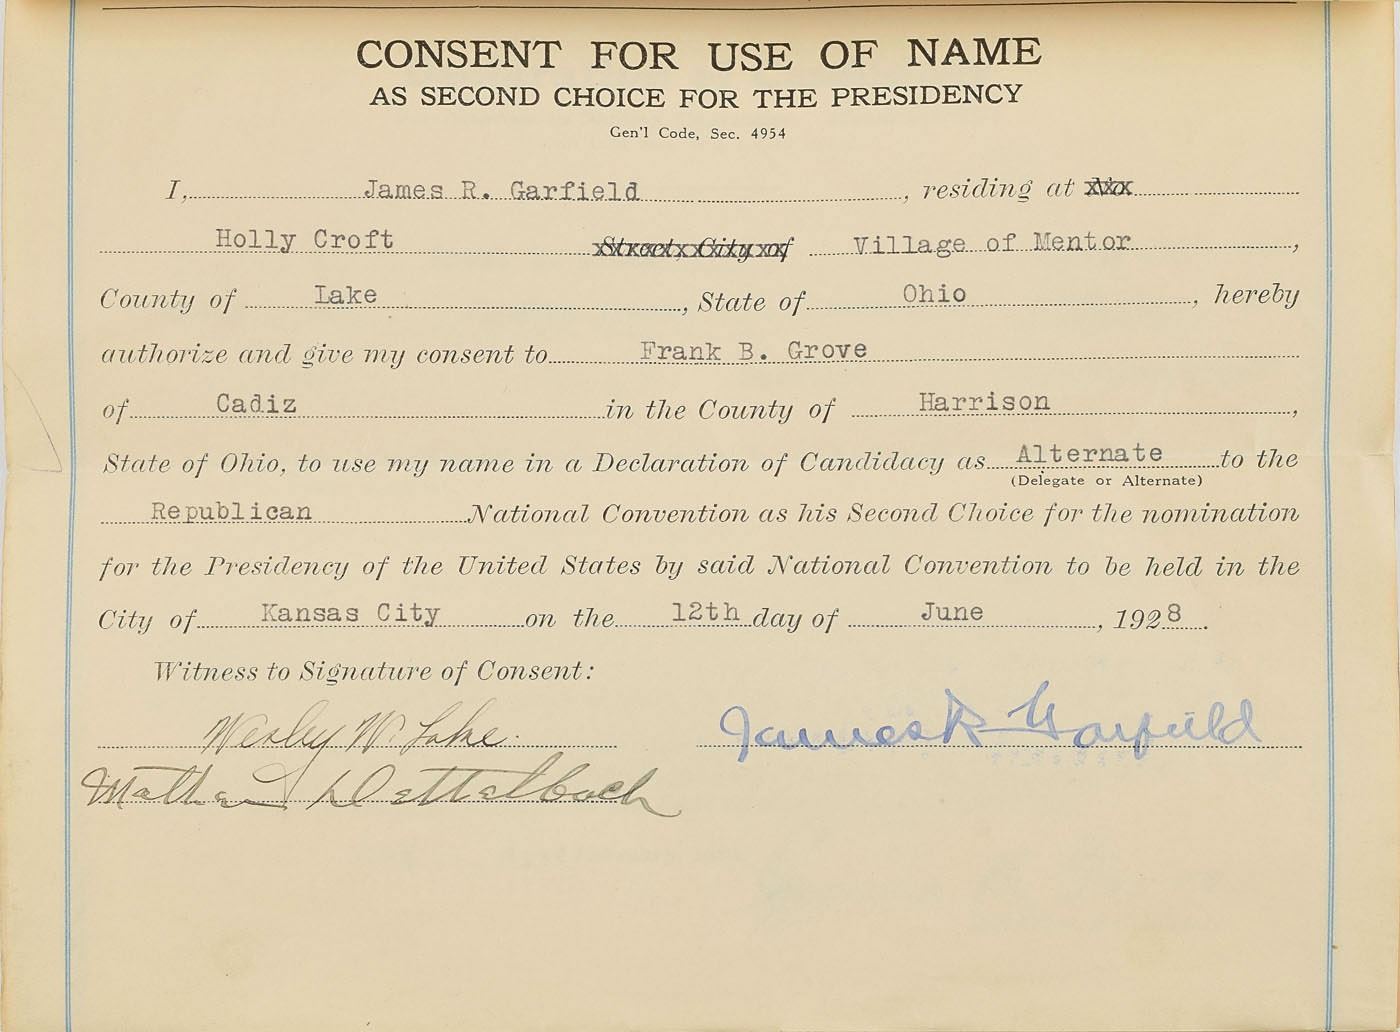 CONSENT FOR USE OF NAME
AS SECOND CHOICE FOR THE PRESIDENCY
Gen'l Code, Sec. 4954
I, James R. Garfield, residing at
Holly Croft Street, City of Village of Mentor,
County of Lake, State of Ohio, hereby
authorize and give my consent to Frank B. Grove
of Cadiz in the County of Harrison,
State of Ohio, to use my name in a Declaration of Candidacy as Alternate to the
(Delegate or Alternate)
Republican National Convention as his Second Choice for the nomination
for the Presidency of the United States by said National Convention to be held in the
City of Kansas City on the 12th day of June, 1928.
Witness to Signature of Consent:
Wesley W. Lake. James R Garfield
Dettelbach